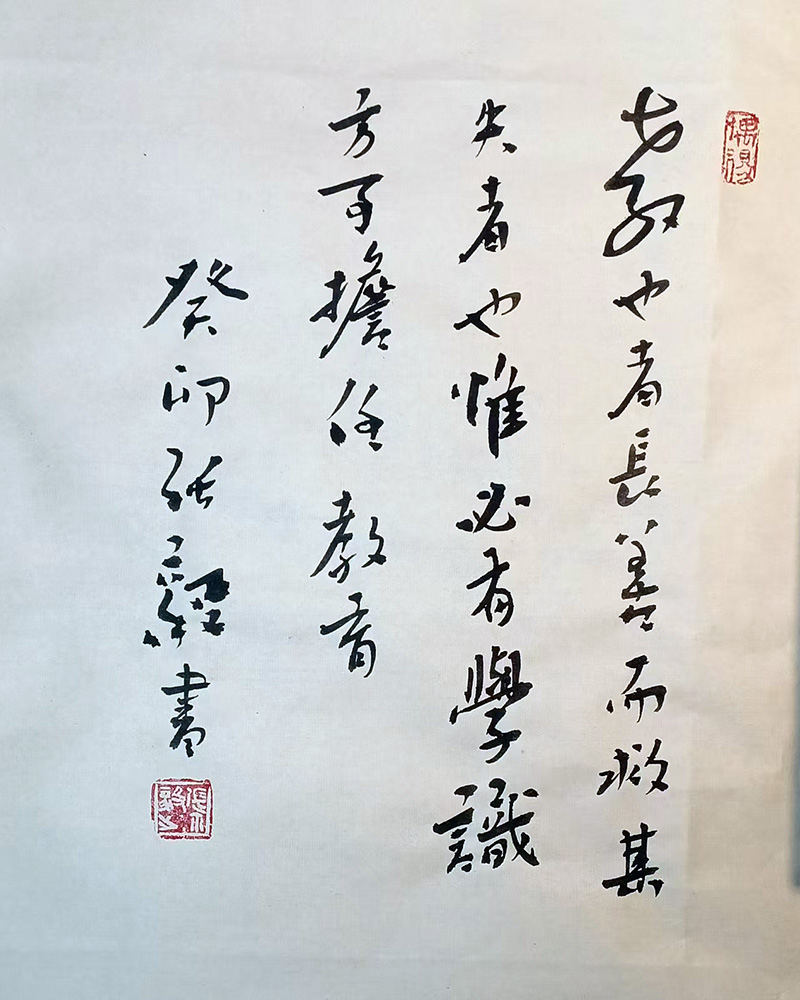 教也者長善而救其
失者也惟必有學識
方可擔任教育
癸卯張書
偶得